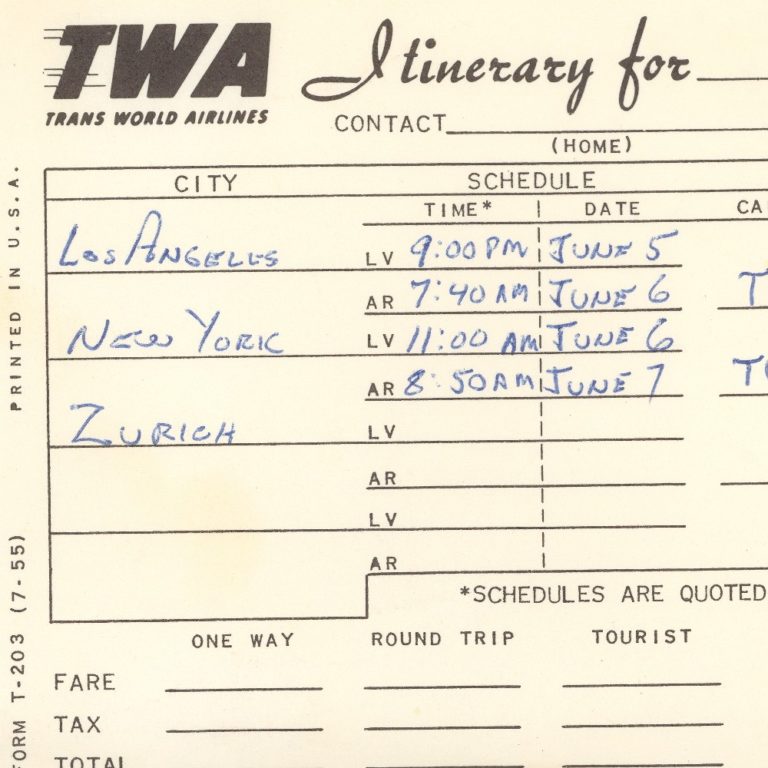 TWA Itinerary for
TRANS WORLD AIRLINES
CONTACT
(HOME)
CITY SCHEDULE
TIME* DATE CA
Los Angeles LV 9:00 PM June 5
AR 7:40 AM June 6 T
New York LV 11:00 AM June 6
AR 8:50 AM June 7
Zurich LV
AR
LV
AR
*SCHEDULES ARE QUOTED
ONE WAY ROUND TRIP TOURIST
FARE
TAX
TOTAL
PRINTED IN U.S.A.
FORM T-203 (7-55)